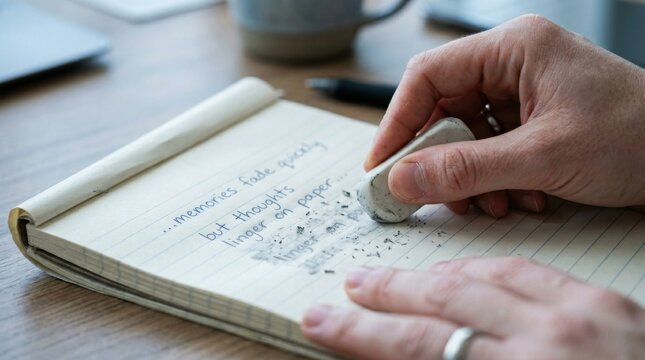 ...memories fade quickly
but thoughts
linger on paper...
linger on